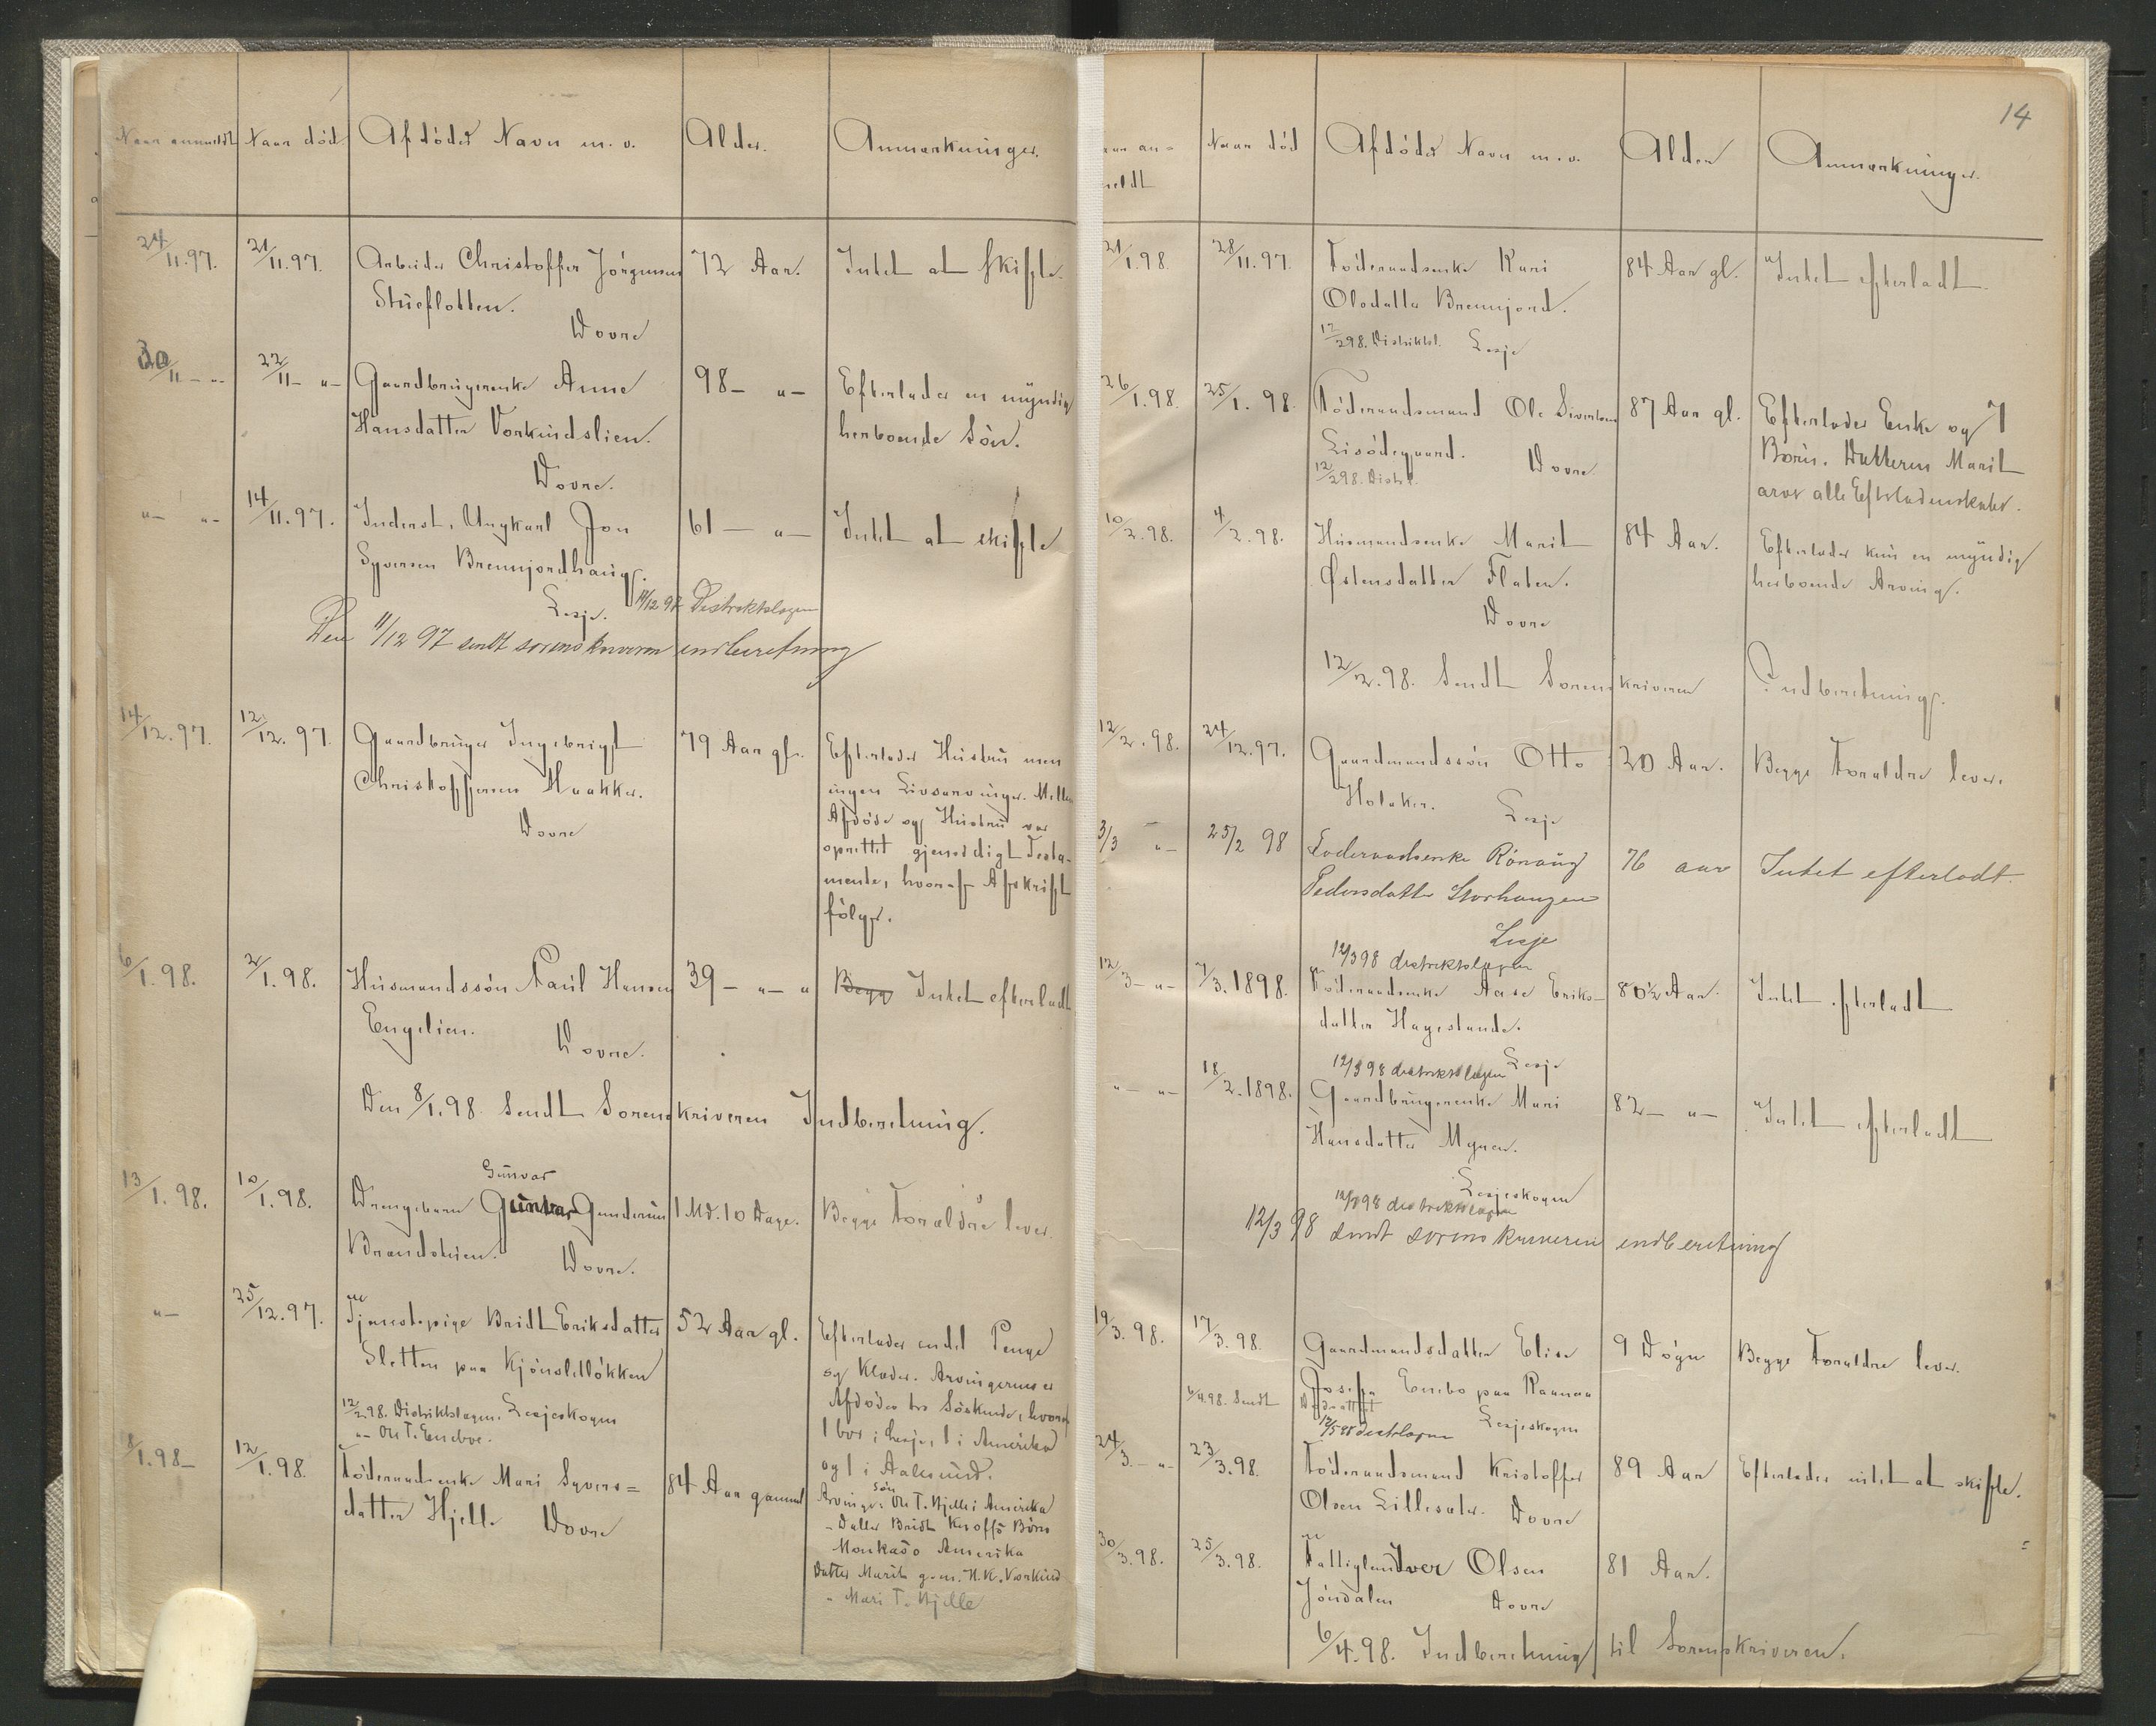 Naar anmeldt Naar død Afdødes Navn m.v. Alder. Anmærkninger.
24/11.97. 21/11.97. Arbeider Christoffer Jörgensen 72 Aar. Intet at skifte.
Stueflotten.
Dovre
30/11 - „- 22/11 - „- Gaardbrugerenke Anne 98 - „- Efterlader en myndig
Hansdatter Vorkindslien. herboende Sön.
Dovre.
„- „- 14/11.97. Inderst, Ungkarl Jon 61 - „- Intet at skifte
Syversen Brennjordhaug.
Lesje. 11/12 97 Distriktslagen
Den 11/12 97 sendt sorenskriveren indberetning
14/12.97. 12/12.97. Gaardbruger Ingebrigt 79 Aar gl. Efterlader Hustru men
Christoffersen Haakker. ingen Livsarvinger. Mellem
Dovre Afdöde og Hustru var
oprettet gjensidigt Testa-
mente, hvoraf Afskrift
fölger.
6/1.98. 2/1.98. Husmandssön Paul Hansen 39 - „- „ Begg Intet efterladt
Engelien.
Dovre.
Den 8/1.98. Sendt Sorenskriveren Indberetning.
Gunvar
13/1.98. 10/1.98. Drengebarn Gunvar Gundersen 1 Md. 10 Dage. Begge Forældre lever.
Brandslien. Dovre.
„- 25/12.97. Tjenestepige Bridt Eriksdatter 52 Aar gl. Efterlader endel Penge
Sletten paa Kjönsletlökken og Klæder. Arvingerne er
Afdödes tre Söskende, hvoraf
12/2.98. Distriktslagen. Lesjeskogen 1 bor i Lesje, 1 i Amerika
„- Ole T. Eneboe. og 1 i Aalesund.
8/1.98 - 12/1.98. Föderaadsenke Mari Syvers= 84 Aar gammel Arvinger: Sön Ole T. Hjelle i Amerika
datter Hjelle Dovre - Datter Bridt Börs
Amerika
Datter Marit g.m. H.K. Vorkind
„ Mari T. Hjelle
14
Naar an- Naar död Afdödes Navn m.v. Alder Anmærkninger.
meldt
21/1.98. 28/11.97. Föderaadsenke Kari 84 Aar gl. Intet efterladt.
Olsdatter Brennjord.
12/2 98. Distriktsl. Lesje
26/1.98. 25/1.98. Föderaadsmand Ole Sivertsen 87 Aar gl. Efterlader Enke og 7
Lisödegaard. Dovre Börn. Datteren Marit
12/2 98. Distr. arver alle Efterladenskaber.
10/2.98. 4/2.98. Husmandsenke Marit 84 Aar. Efterlader kun en myndig
Østensdatter Flaten. herboende Arving.
Dovre
12/2.98. Sendt Sorenskriveren Indberetning.
12/2.98. 24/12.97. Gaardmandssön Otto 20 Aar. Begge Forældre lever.
Holaker. Lesje
3/3 „- 25/2 98 Föderaadsenke Rönaug 76 aar Intet efterladt.
Pedersdatter Storhaugen
Lesje
12/3 98 distriktslagen
12/3 - „- 7/3.1898. Föderaadsenke Aase Eriks- 80½ Aar. Intet efterladt
datter Hagestande.
12/3 98 distriktslagen Lesje
„- „- 18/2.1898. Gaardbrugerenke Mari 82 - „- Intet efterladt
Hansdatter Myren.
Lesjeskogen
12/3 98 distriktslagen
12/3 98 sendt sorenskriveren indberetning
19/3.98. 17/3.98. Gaardmandsdatter Elise 9 Dögn Begge Forældre lever.
Josefa Enebo paa Raanaa
6/4.98. Sendt Lesjeskogen
12/5 98 distrlagen
24/3. - „- 23/3.98. Föderaadsmand Kristoffer 89 Aar Efterlader intet at skifte.
Olsen Lillesæter. Dovre
30/3.98. 25/3.98. Fattiglem Iver Olsen 81 Aar.
Jöndalen Dovre
6/4.98. Indberetning til Sorenskriveren.